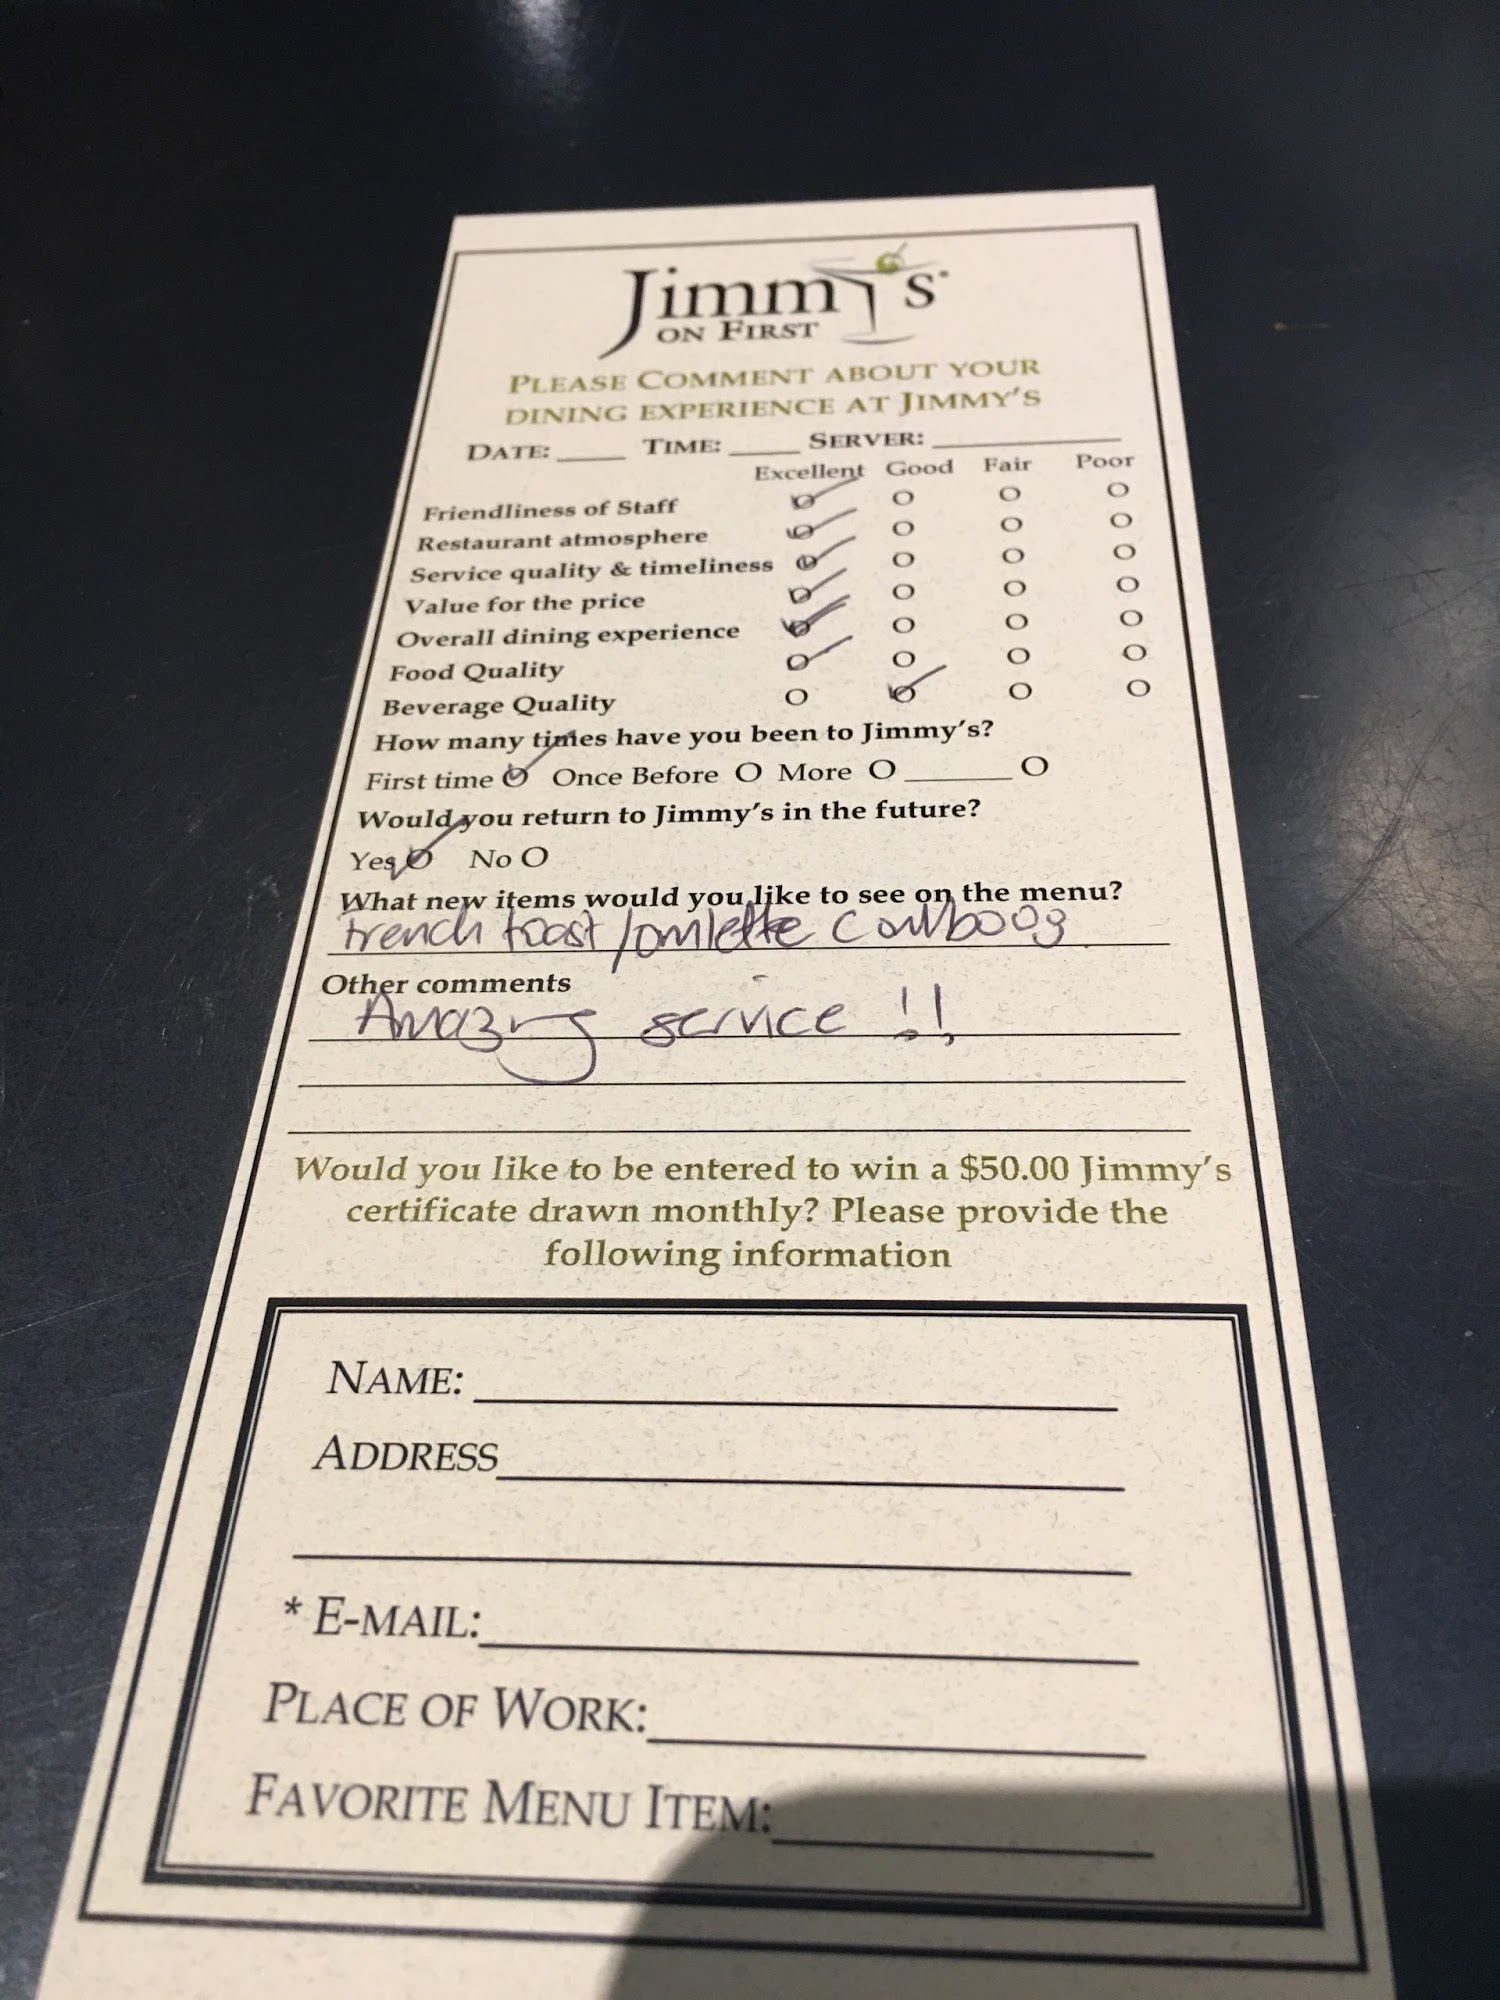 Jimmy's
ON FIRST
PLEASE COMMENT ABOUT YOUR
DINING EXPERIENCE AT JIMMY'S
DATE: ____ TIME: ____ SERVER: ____________
Excellent Good Fair Poor
Friendliness of Staff
Restaurant atmosphere
Service quality & timeliness
Value for the price
Overall dining experience
Food Quality
Beverage Quality
How many times have you been to Jimmy's?
First time O Once Before O More O ________ O
Would you return to Jimmy's in the future?
Yes O No O
What new items would you like to see on the menu?
french toast / omlette
Other comments
Amazing service !!
Would you like to be entered to win a $50.00 Jimmy's
certificate drawn monthly? Please provide the
following information
NAME:
ADDRESS
* E-MAIL:
PLACE OF WORK:
FAVORITE MENU ITEM: